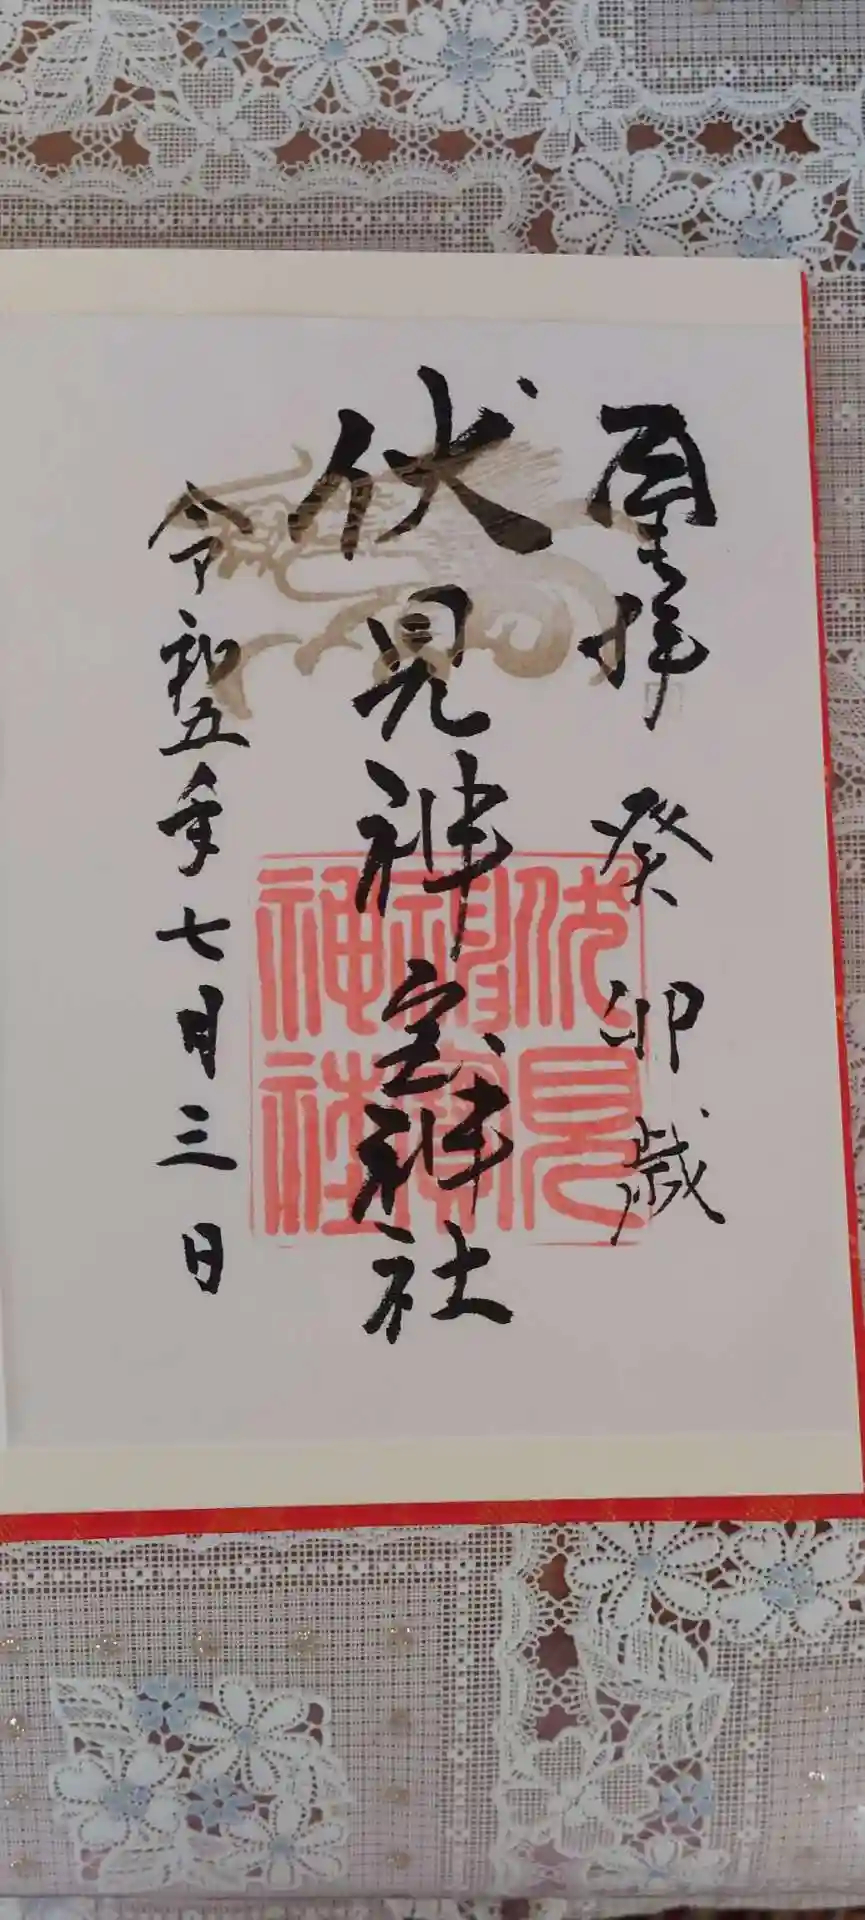 拝 癸卯歳
伏見神宝神社
令和五年七月三日
伏見
神寶
神社